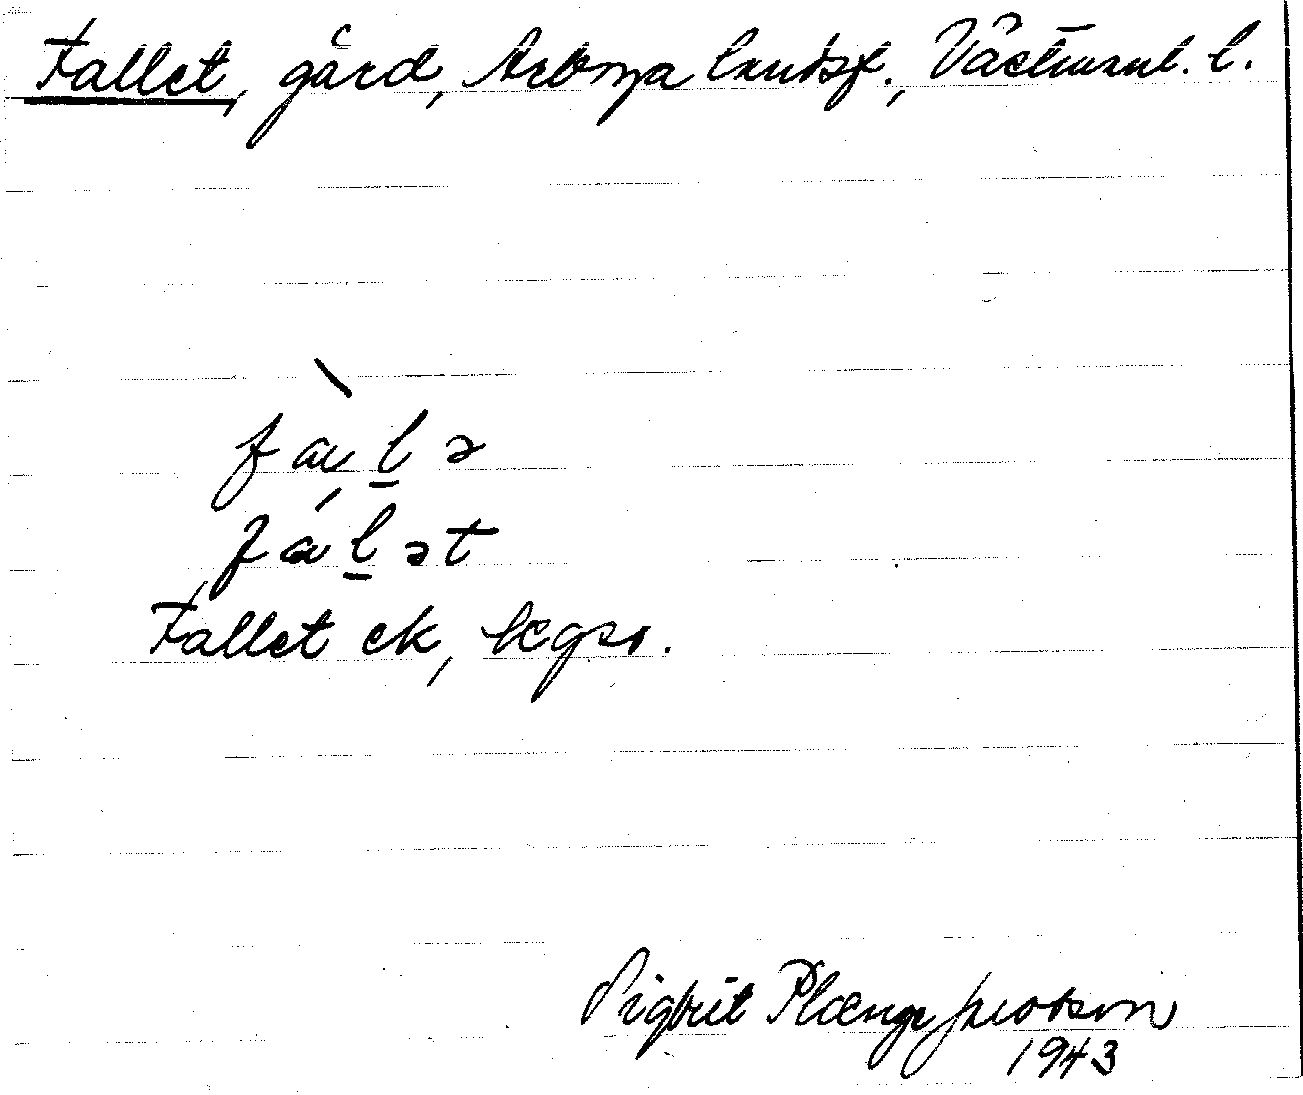 Fallet, gård, Arboga landsf., Västmanl. l.
fàl̲ə
fál̲ət
Fallet ek,
Sigbrit Plænge Jacobson
1943